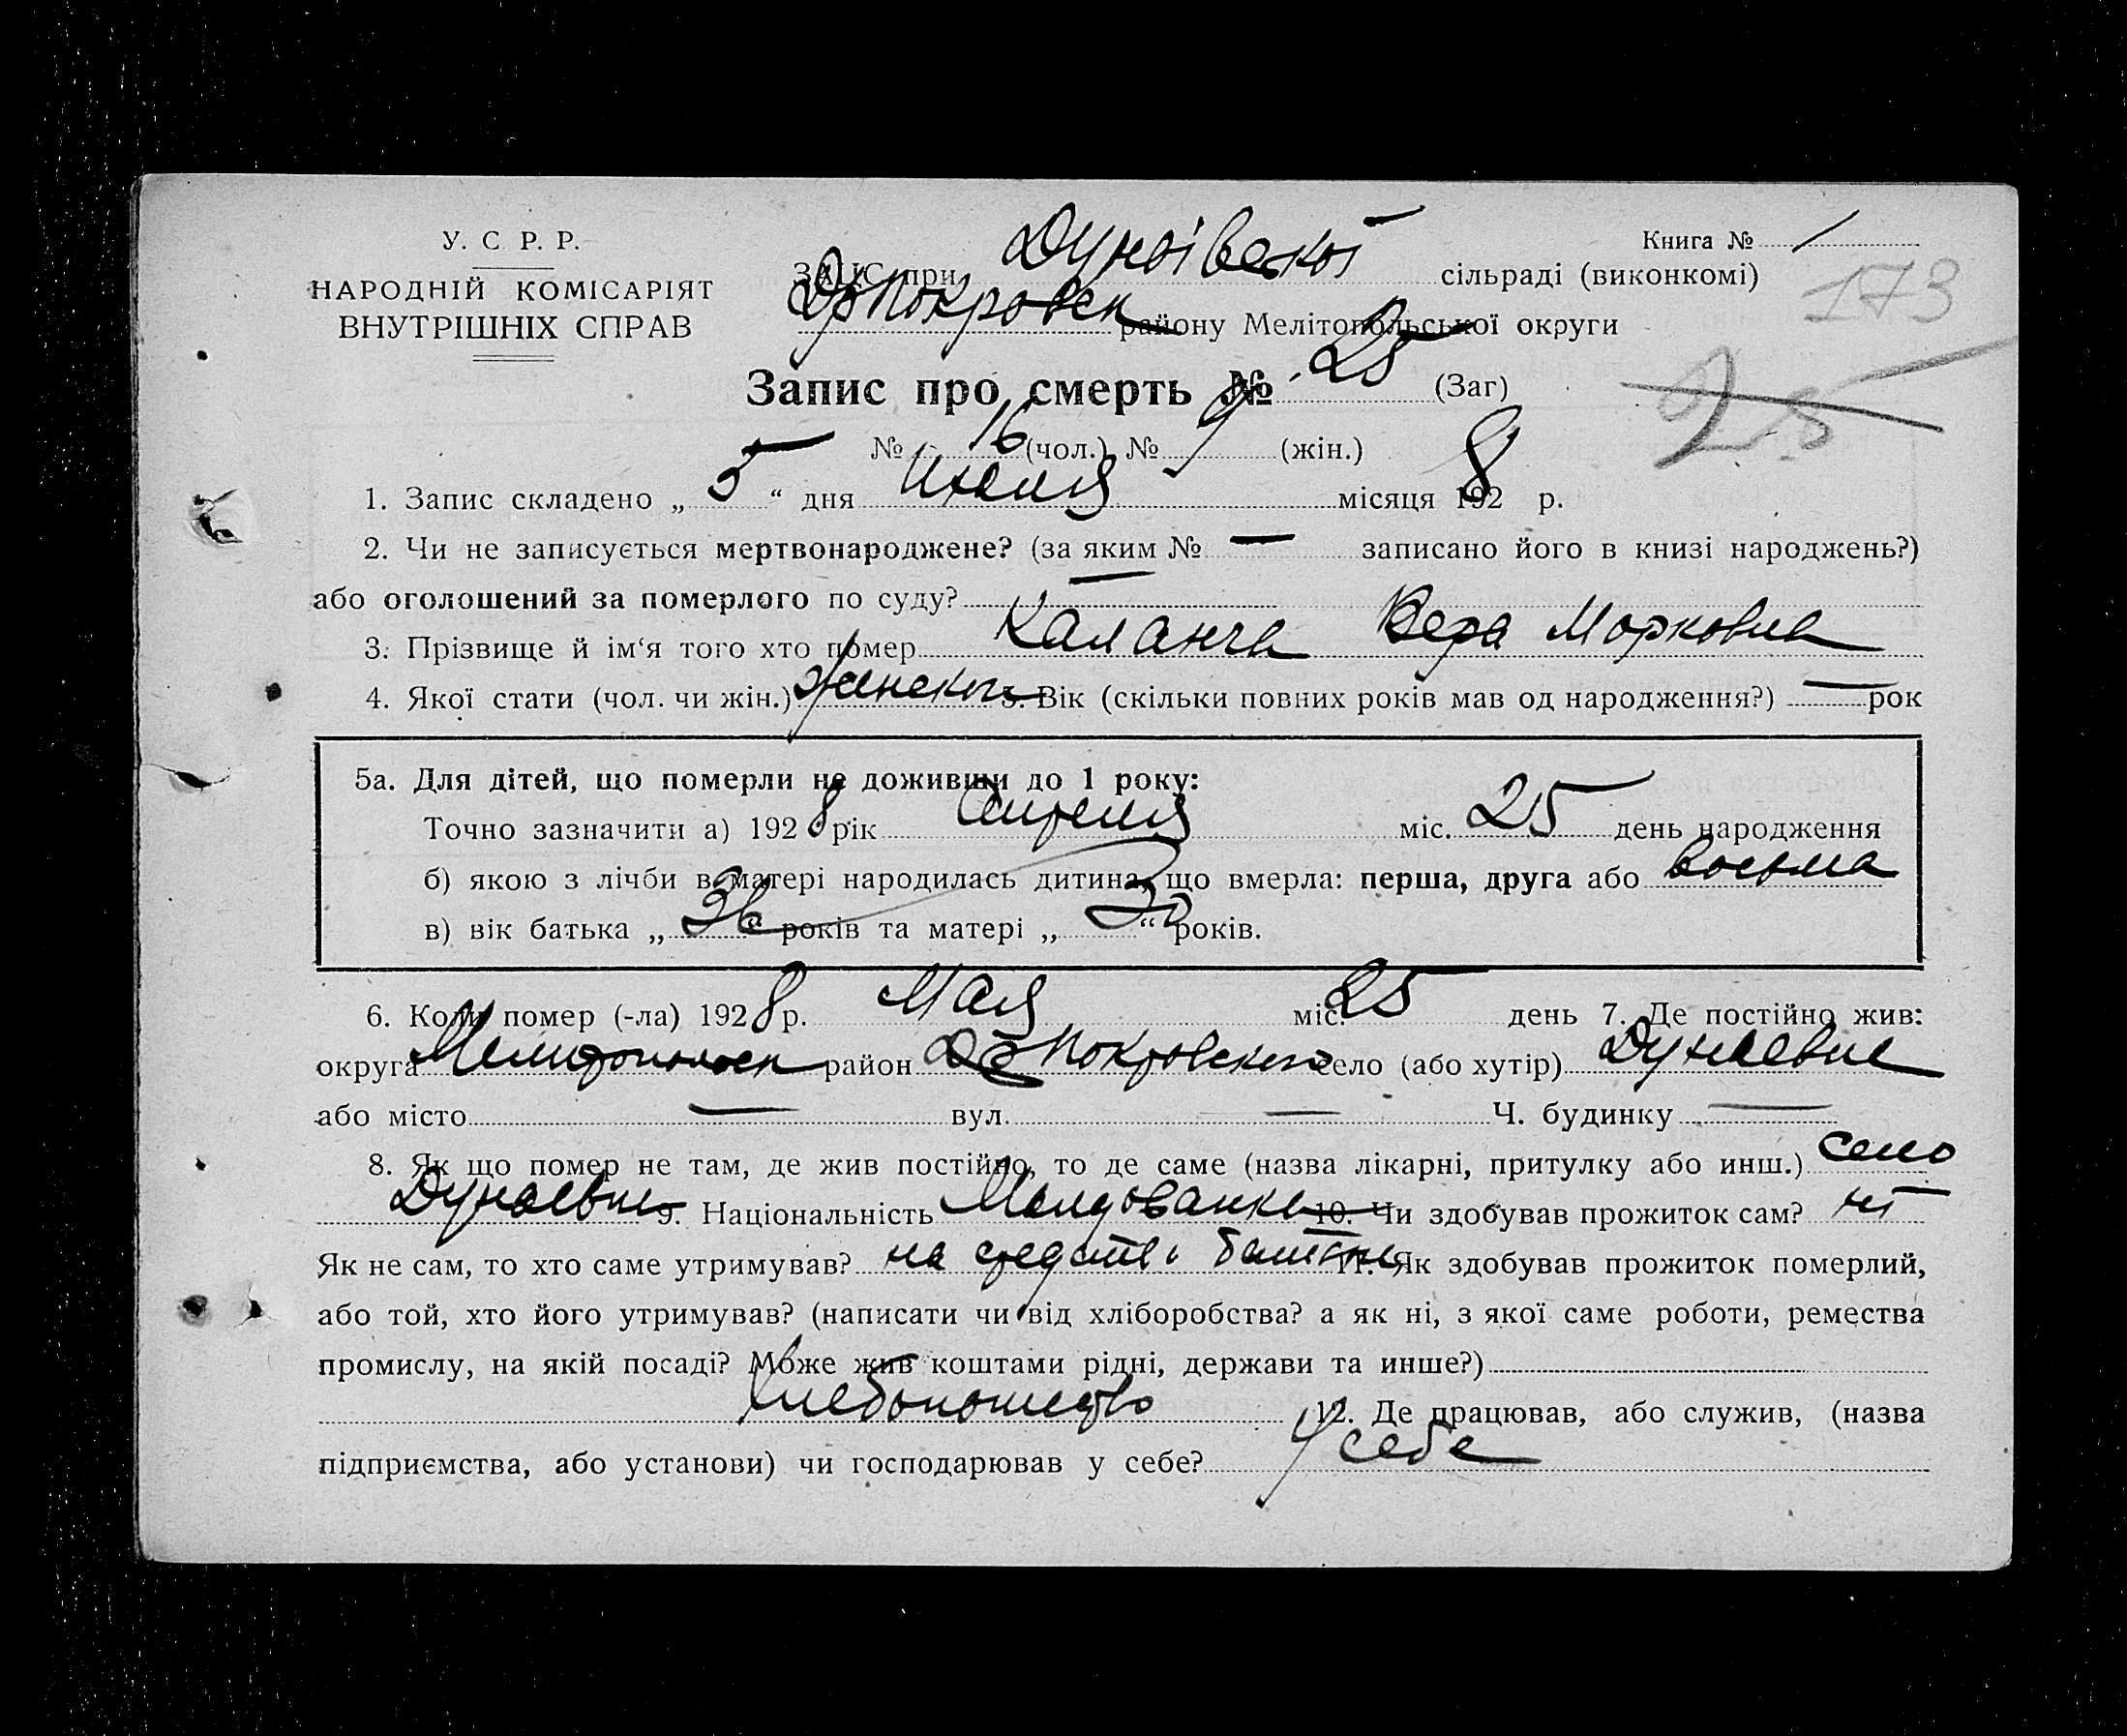 У. С. Р. Р.
НАРОДНІЙ КОМІСАРІЯТ
ВНУТРІШНІХ СПРАВ
Книга № 1
ЗАЦС при Дунаівскоі сільраді (виконкомі)
173
Покровск району Мелітопольської округи
Запис про смерть № 25 (Заг)
25
№ 16 (чол.) № 9 (жін.)
1. Запис складено „ 5 “ дня Июля місяця 1928 р.
2. Чи не записується мертвонароджене? (за яким № — записано його в книзі народжень?)
або оголошений за померлого по суду? —
3. Прізвище й ім‘я того хто помер Каланча Вера Морковна
4. Якої стати (чол. чи жін.) Женской 5. Вік (скільки повних років мав од народження?) — рок
5а. Для дітей, що померли не доживши до 1 року:
Точно зазначити а) 1928 рік Апреля міс. 25 день народження
б) якою з лічби в матері народилась дитина, що вмерла: перша, друга або восьма
в) вік батька „ 36 “ років та матері „ 30 “ років.
6. Коли помер (-ла) 1928 р. Мая міс. 25 день 7. Де постійно жив:
округа Мелитопольск район Покровской село (або хутір) Дунаевка
або місто — вул. — Ч. будинку —
8. Як що помер не там, де жив постійно, то де саме (назва лікарні, притулку або инш.) село
Дунаевка 9. Національність Молдованка 10. Чи здобував прожиток сам? ні
Як не сам, то хто саме утримував? на средстві батьки 11. Як здобував прожиток померлий,
або той, хто його утримував? (написати чи від хліборобства? а як ні, з якої саме роботи, ремества
промислу, на якій посаді? Може жив коштами рідні, держави та инше?)
хлебопашество 12. Де працював, або служив, (назва
підприємства, або установи) чи господарював у себе? У себе